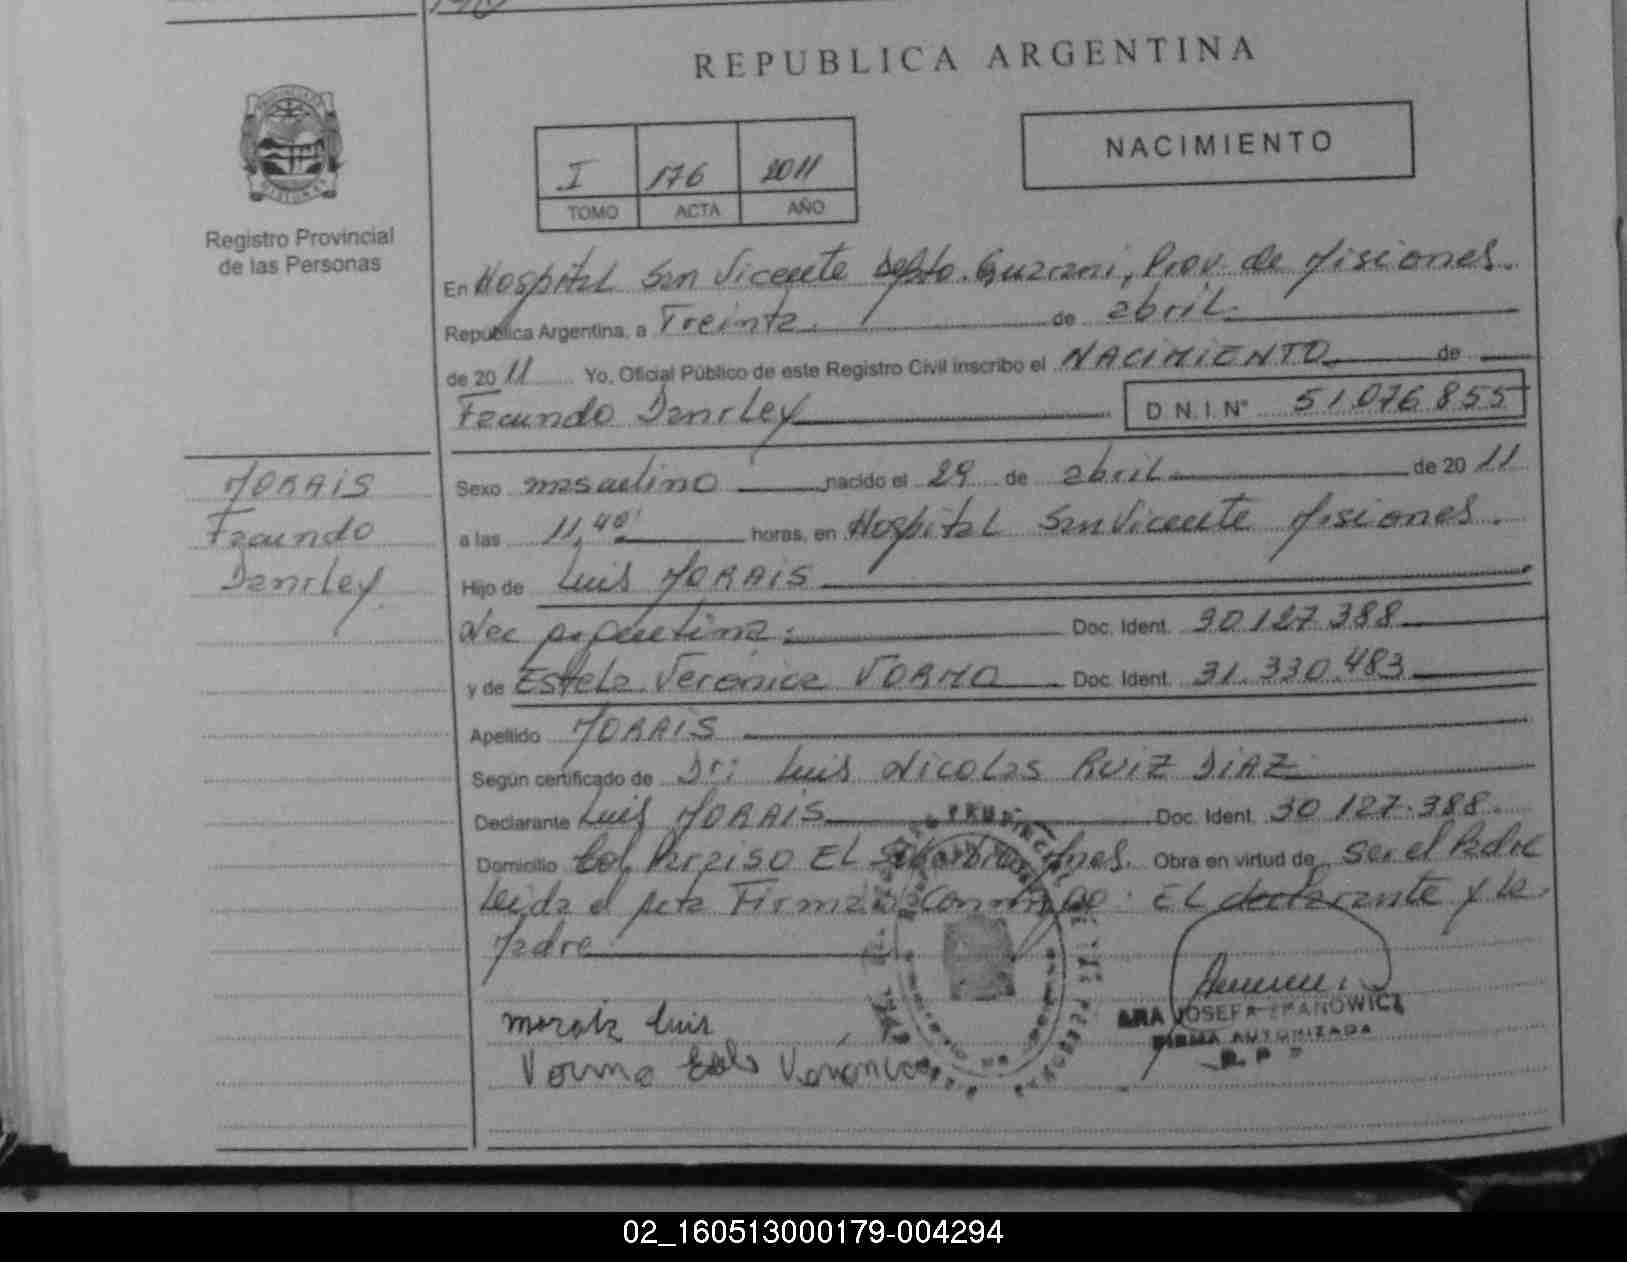 REPUBLICA ARGENTINA
Registro Provincial
de las Personas
I 176 2011
TOMO ACTA AÑO
NACIMIENTO
En Hospital San Vicente Depto. Guarani, Prov. de Misiones.
República Argentina, a Treinta de abril.
de 2011 Yo, Oficial Público de este Registro Civil inscribo el NACIMIENTO de
Facundo Danrley D.N.I.N° 51.076.855
MORAIS
Facundo
Danrley
Sexo masculino nacido el 29 de abril de 2011
a las 11,40' horas, en Hospital San Vicente Misiones.
Hijo de Luis MORAIS
Nac Argentina. Doc. Ident. 30.127.388
y de Estela Veronica VORMO Doc. Ident. 31.330.483
Apellido MORAIS
Según certificado de Dr: Luis Nicolas RUIZ DIAZ
Declarante Luis MORAIS Doc. Ident. 30.127.388.
Domicilio Col. Paraiso EL Mnes. Obra en virtud de Ser el Padre
Leida el Acta Firman Conmigo: EL declarante y la
Madre
Luis
JOSEFA
FIRMA AUTORIZADA
R.P.
02_160513000179-004294